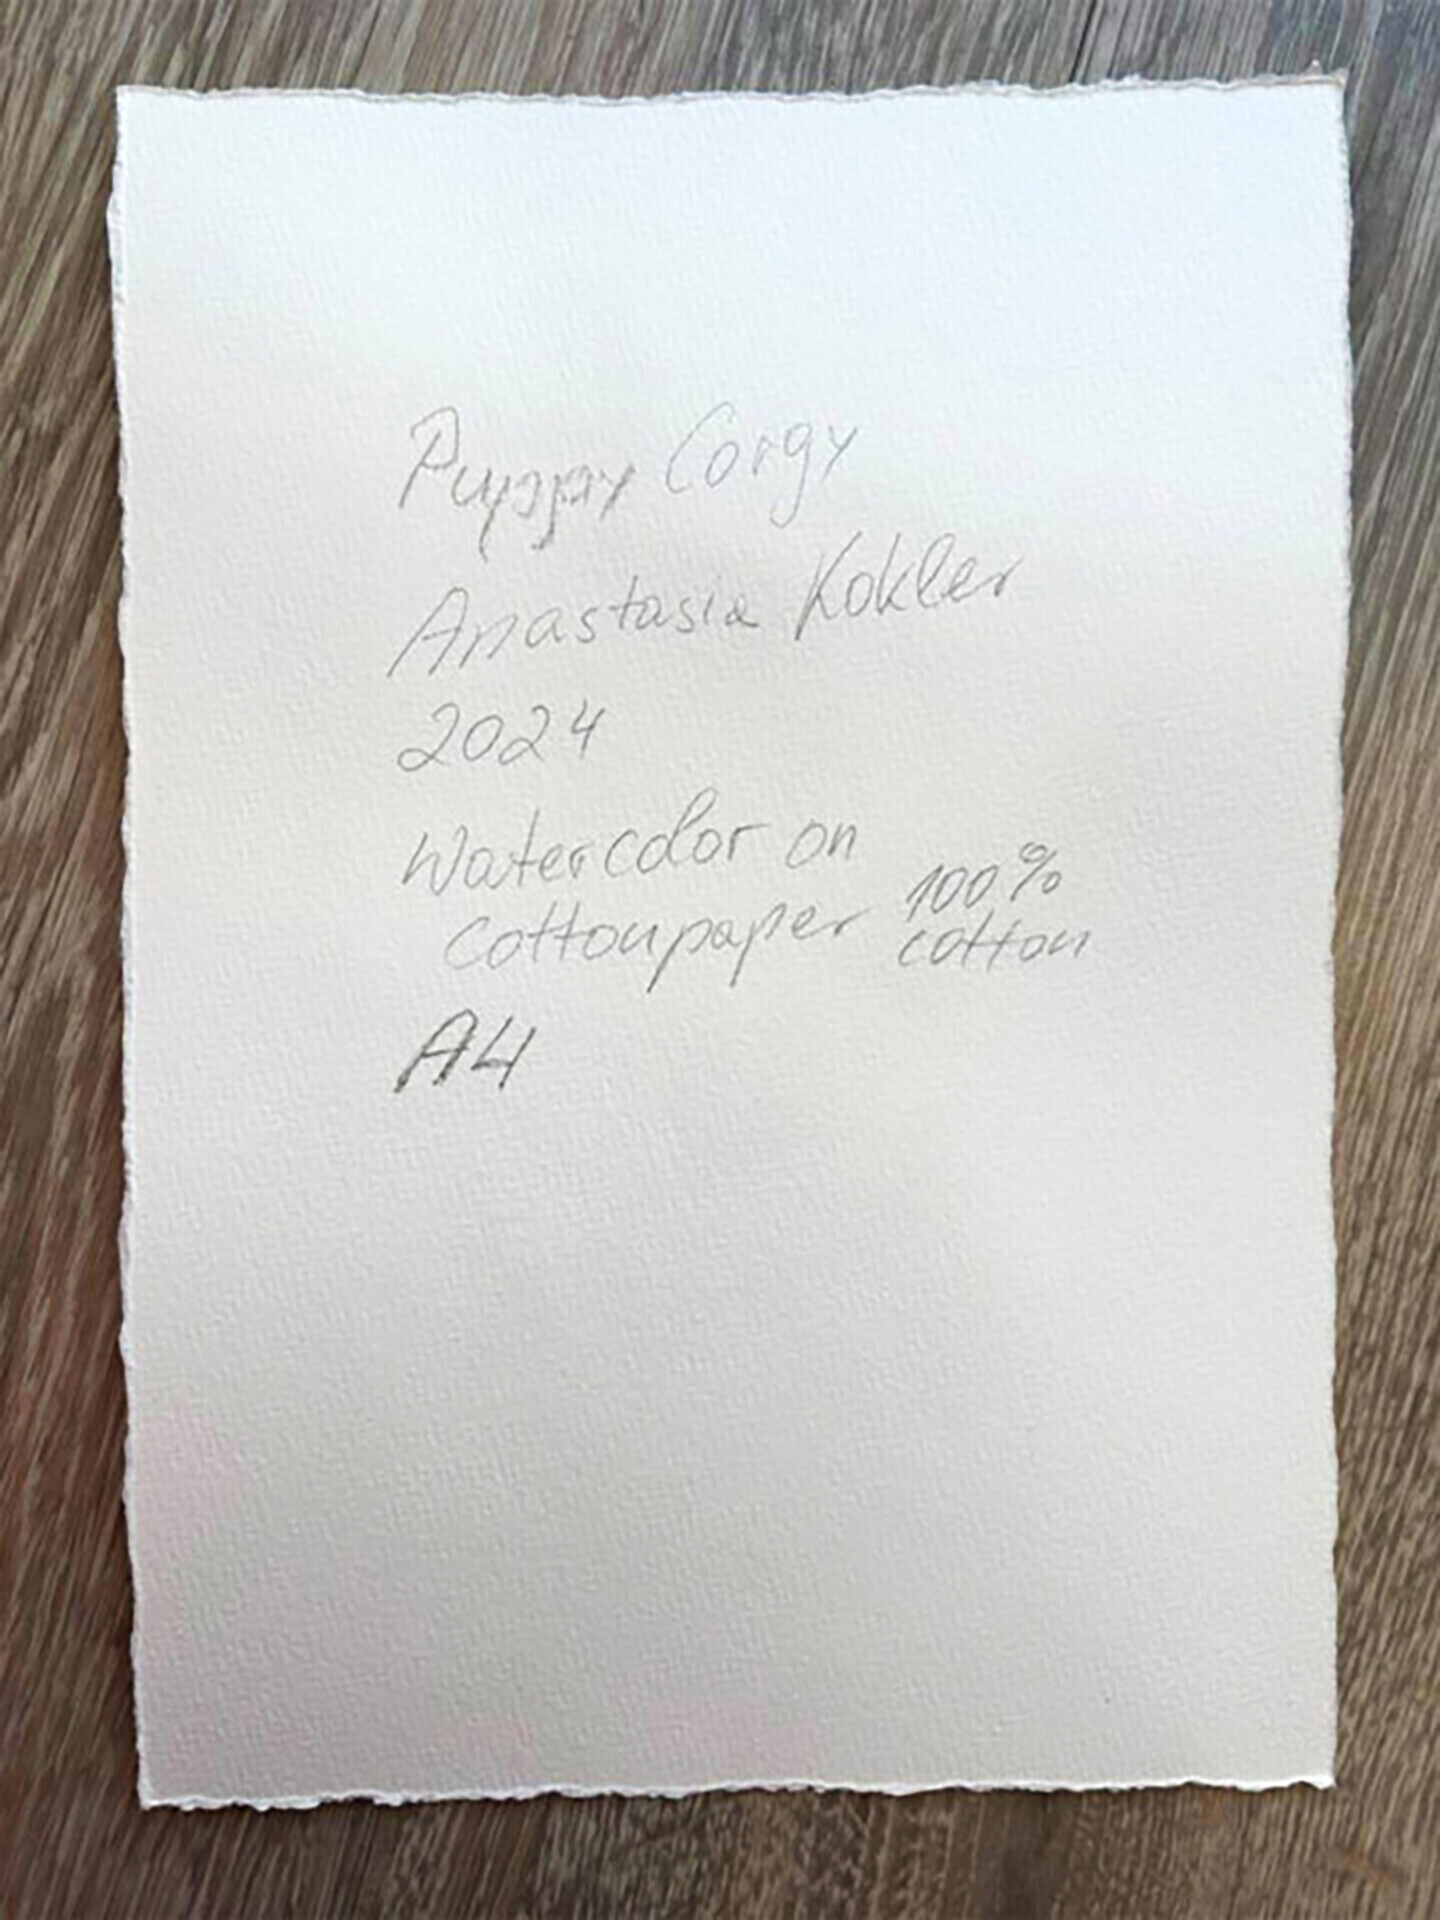 Puppy Corgy
Anastasia Kokler
2024
Watercolor on
cottonpaper 100%
cotton
A4